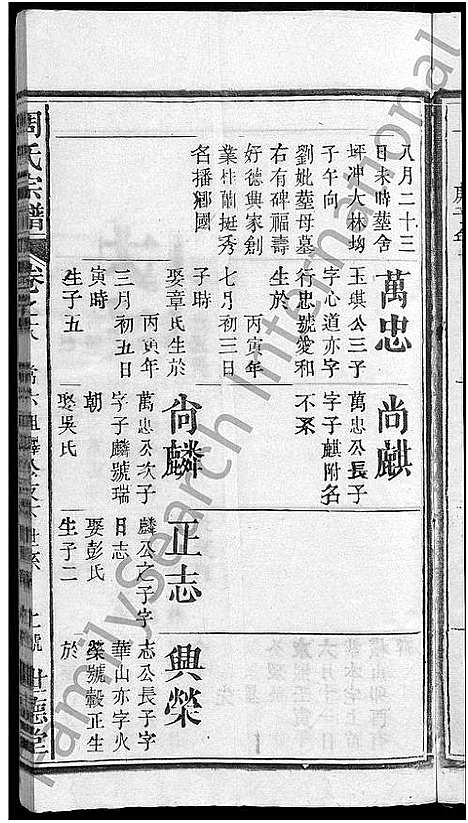 八月二十三
日未時塟舍
坪冲大林坳
子午向
劉妣塟母墓
右有碑福壽
好德興家創
業
挺秀
名播鄉國
萬忠
玉琪公三子
字心道亦字
行忠號愛和
生於
丙寅年
七月初三日
子時
娶章氏生於
丙寅年
三月初五日
寅時
生子五
尚麒
萬忠公長子
字子麒附名
不系
尙麟
萬忠公次子
字子麟號瑞
朝
娶吳氏
正志
麟公之子字
日志
娶彭氏
生子二
興榮
志公長子字
華山亦字火
榮號穀正生
於
周氏宗譜
卷之
世德堂
FamilySearch International